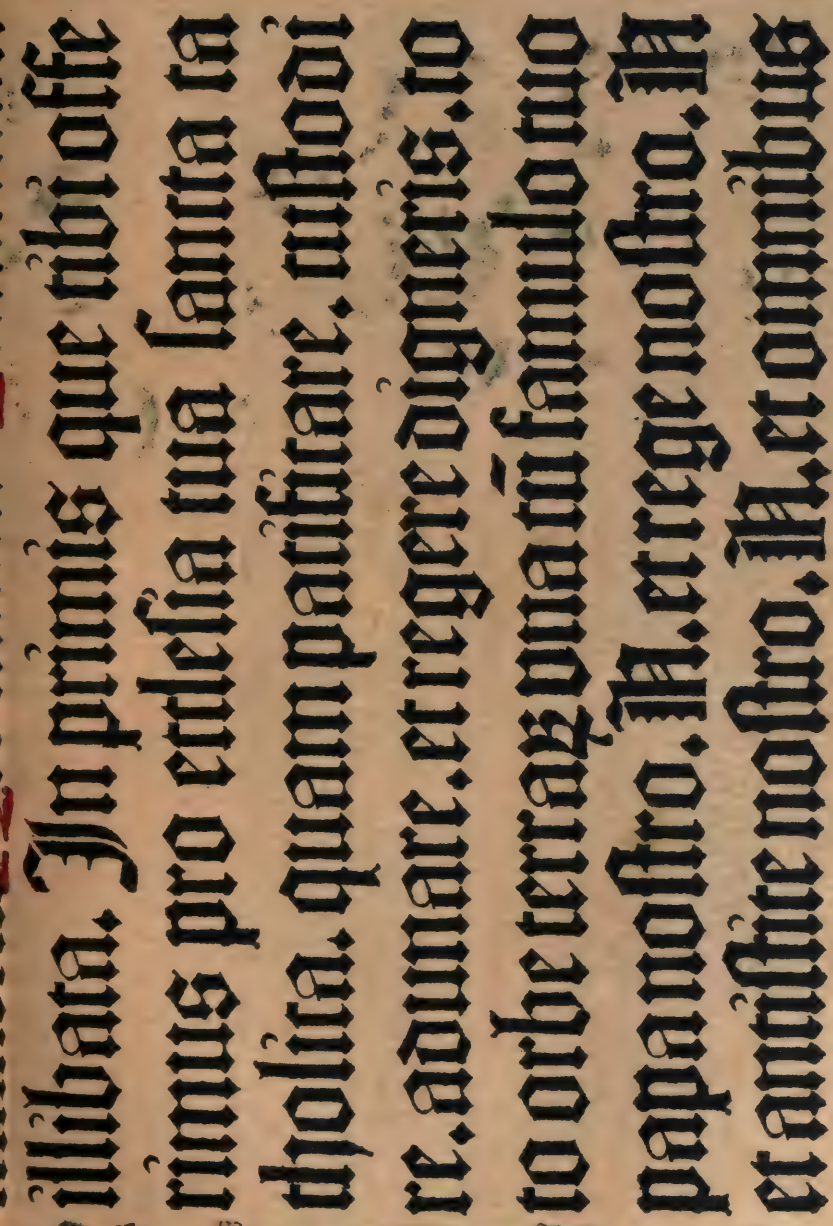 illibata. In primis que tibi offe
rimus pro eccleſia tua ſancta ca
tholica. quam pacificare. cuſtodi
re. adunare. et regere digneris. to
to orbe terraꝝ vna cū famulo tuo
papa noſtro. N. et rege noſtro. N
et antiſtite noſtro. N. et omnibus